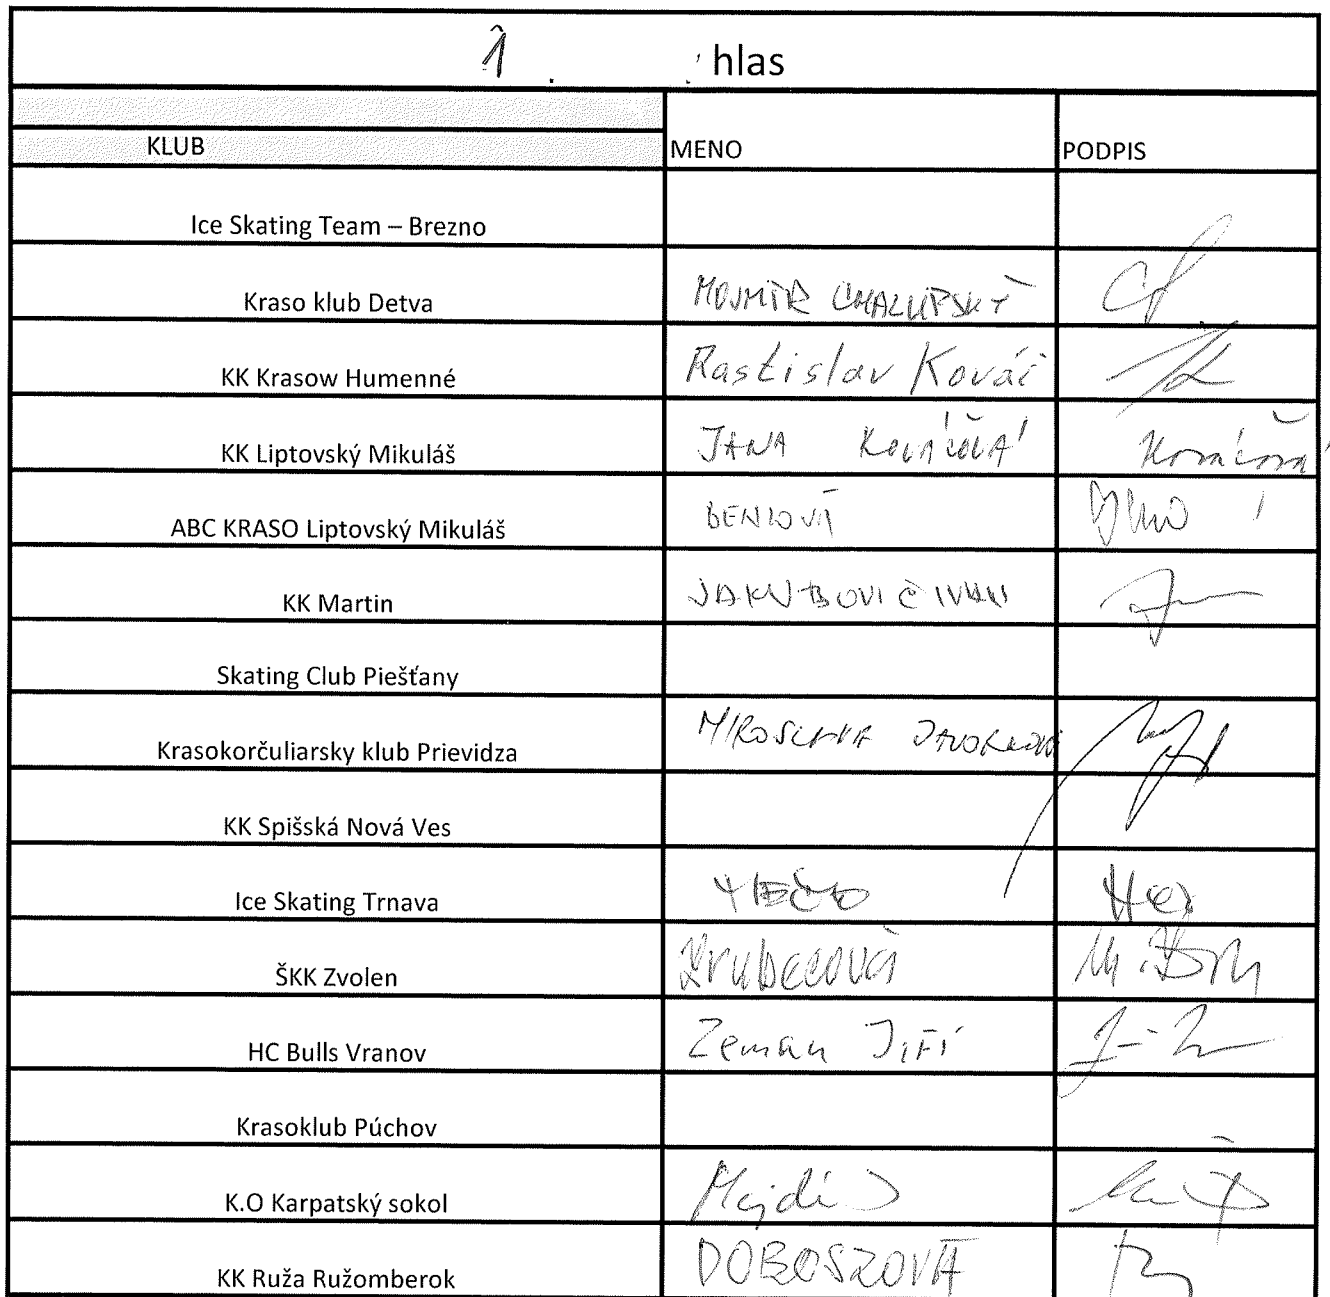 1 hlas
KLUB MENO PODPIS
Ice Skating Team – Brezno
Kraso klub Detva MOJMÍR CHALUPSKÝ
KK Krasow Humenné Rastislav Kováč
KK Liptovský Mikuláš JANA KOVÁČOVÁ Kováčová
ABC KRASO Liptovský Mikuláš
KK Martin JAKUBOVIČ IVAN
Skating Club Piešťany
Krasokorčuliarsky klub Prievidza MIROSLAVA
KK Spišská Nová Ves
Ice Skating Trnava
ŠKK Zvolen
HC Bulls Vranov Zeman Jiří
Krasoklub Púchov
K.O Karpatský sokol
KK Ruža Ružomberok DOBOSZOVÁ